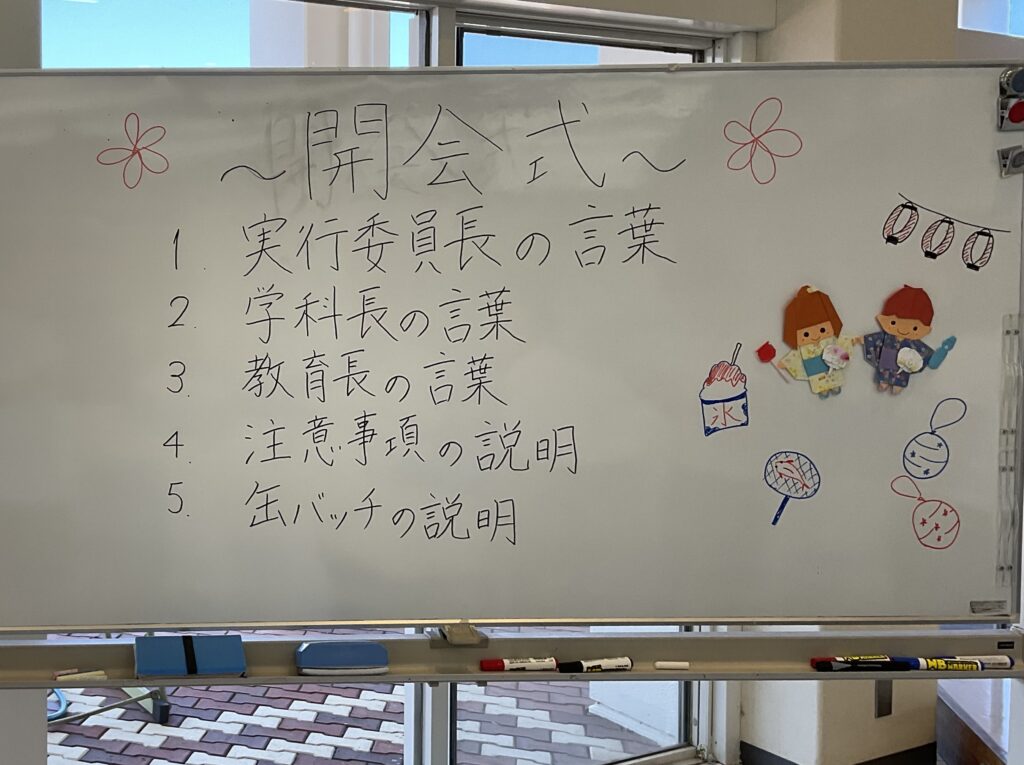 ～開会式～
1. 実行委員長の言葉
2. 学科長の言葉
3. 教育長の言葉
4. 注意事項の説明
5. 缶バッチの説明
氷
WB MARKER